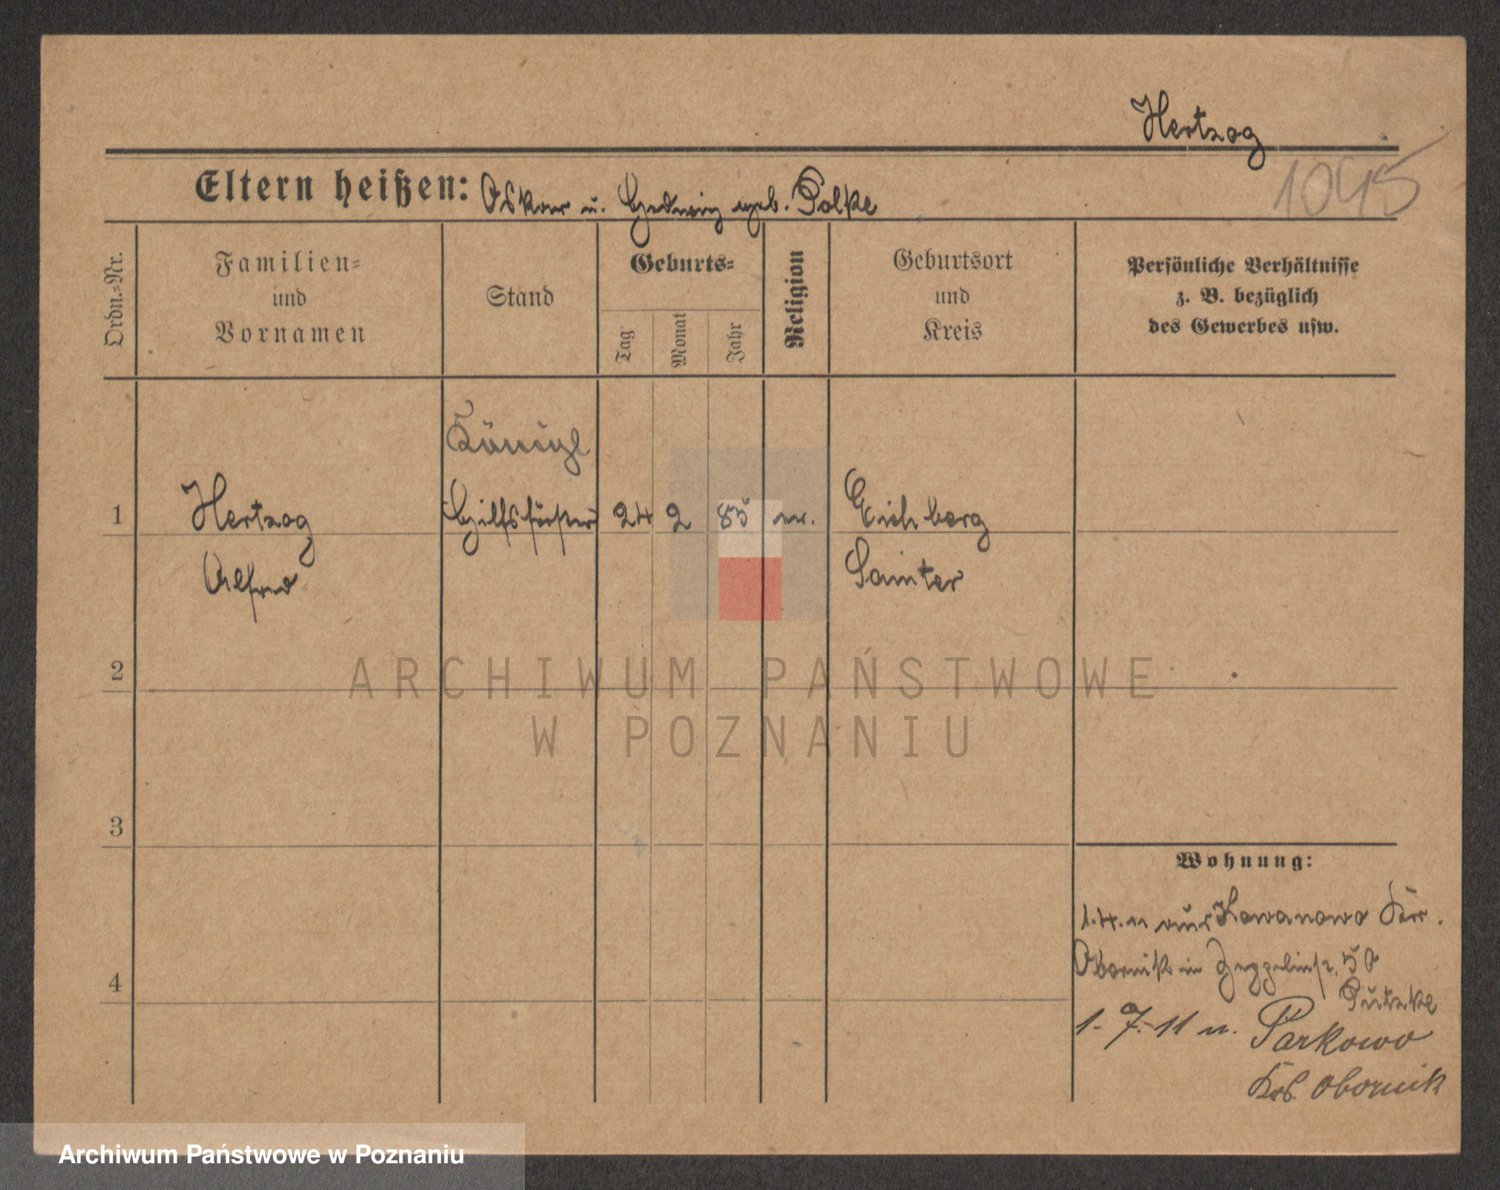 Hertzog
1045
Eltern heißen: Oskar u. Hedwig geb. Polke
Ordn.-Nr.
Familien-
und
Vornamen
Stand
Geburts-
Tag
Monat
Jahr
Religion
Geburtsort
und
Kreis
Persönliche Verhältnisse
z. B. bezüglich
des Gewerbes usw.
Königl
1 Hertzog Hilfsförster 24 2 85 ev. Eichberg
Alfred Samter
2
ARCHIWUM PAŃSTWOWE
W POZNANIU
3
Wohnung:
1.4.11 aus Kowanowo Kr.
4
Obornik in Zeppelinstr. 50
Putzke
1.7.11 n. Parkowo
Krs. Obornik
Archiwum Państwowe w Poznaniu